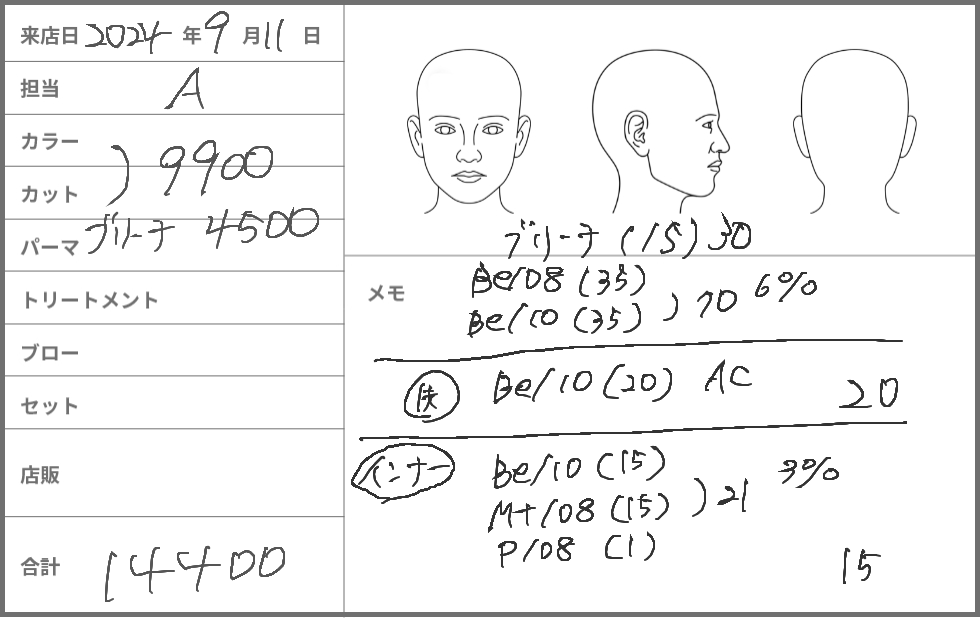 来店日 2024 年 9 月 11 日
担当 A
カラー
カット ) 9900
パーマ ブリーチ 4500
トリートメント
ブロー
セット
店販
合計 14400
ブリーチ (15) 30
メモ
Be/08 (35)
Be/10 (35) ) 70 6%
Be/10 (20) AC 20
インナー Be/10 (15) 3%
Mt/08 (15) ) 21
P/08 (1)
15